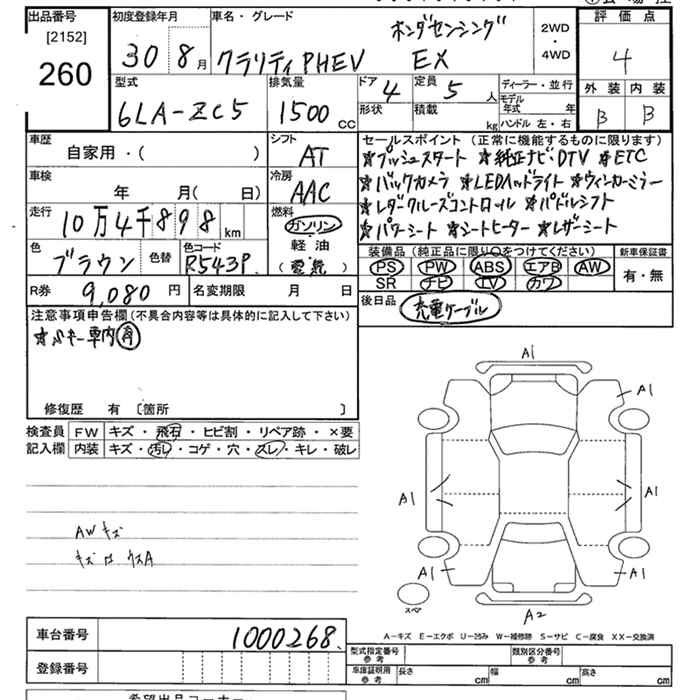 出品番号 [2152] 260
初度登録年月 30 8月
車名・グレード ホンダセンシング
クラリティPHEV EX
2WD
・
4WD
評価点 4
外装 内装
B B
型式 6LA-ZC5
排気量 1500 cc
ドア 4 定員 5 人
形状 積載 kg
ディーラー・並行
モデル年式 年
ハンドル 左・右
車歴 自家用・( )
シフト AT
車検 年 月( 日)
冷房 AAC
走行 10万4千898 km
燃料 ガソリン
軽油
(電気)
色 ブラウン 色替 色コード R543P.
R券 9,080円 名変期限 月 日
セールスポイント (正常に機能するものに限ります)
★プッシュスタート ★純正ナビ・DTV ★ETC
★バックカメラ ★LEDヘッドライト ★ウィンカーミラー
★レダークルーズコントロール ★パドルシフト
★パワーシート ★シートヒーター ★レザーシート
装備品 (純正品に限り○をつけてください) 新車保証書
PS PW ABS エアB AW 有・無
SR ナビ TV カワ
後日品 充電ケーブル
注意事項申告欄 (不具合内容等は具体的に記入して下さい)
キー車内有
修復歴 有 〔箇所 〕
検査員 FW キズ・飛石・ヒビ割・リペア跡・×要
記入欄 内装 キズ・汚レ・コゲ・穴・スレ・キレ・破レ
AWキズ
A1
A1
A1
A1
A1
A1
スペア
A2
A-キズ E-エクボ U-凹み W-補修跡 S-サビ C-腐食 XX-交換済
車台番号 1000268.
登録番号
型式指定番号 参考 類別区分番号 参考
車庫証明用 参考 長さ cm 幅 cm 高さ cm
希望出品コーナー